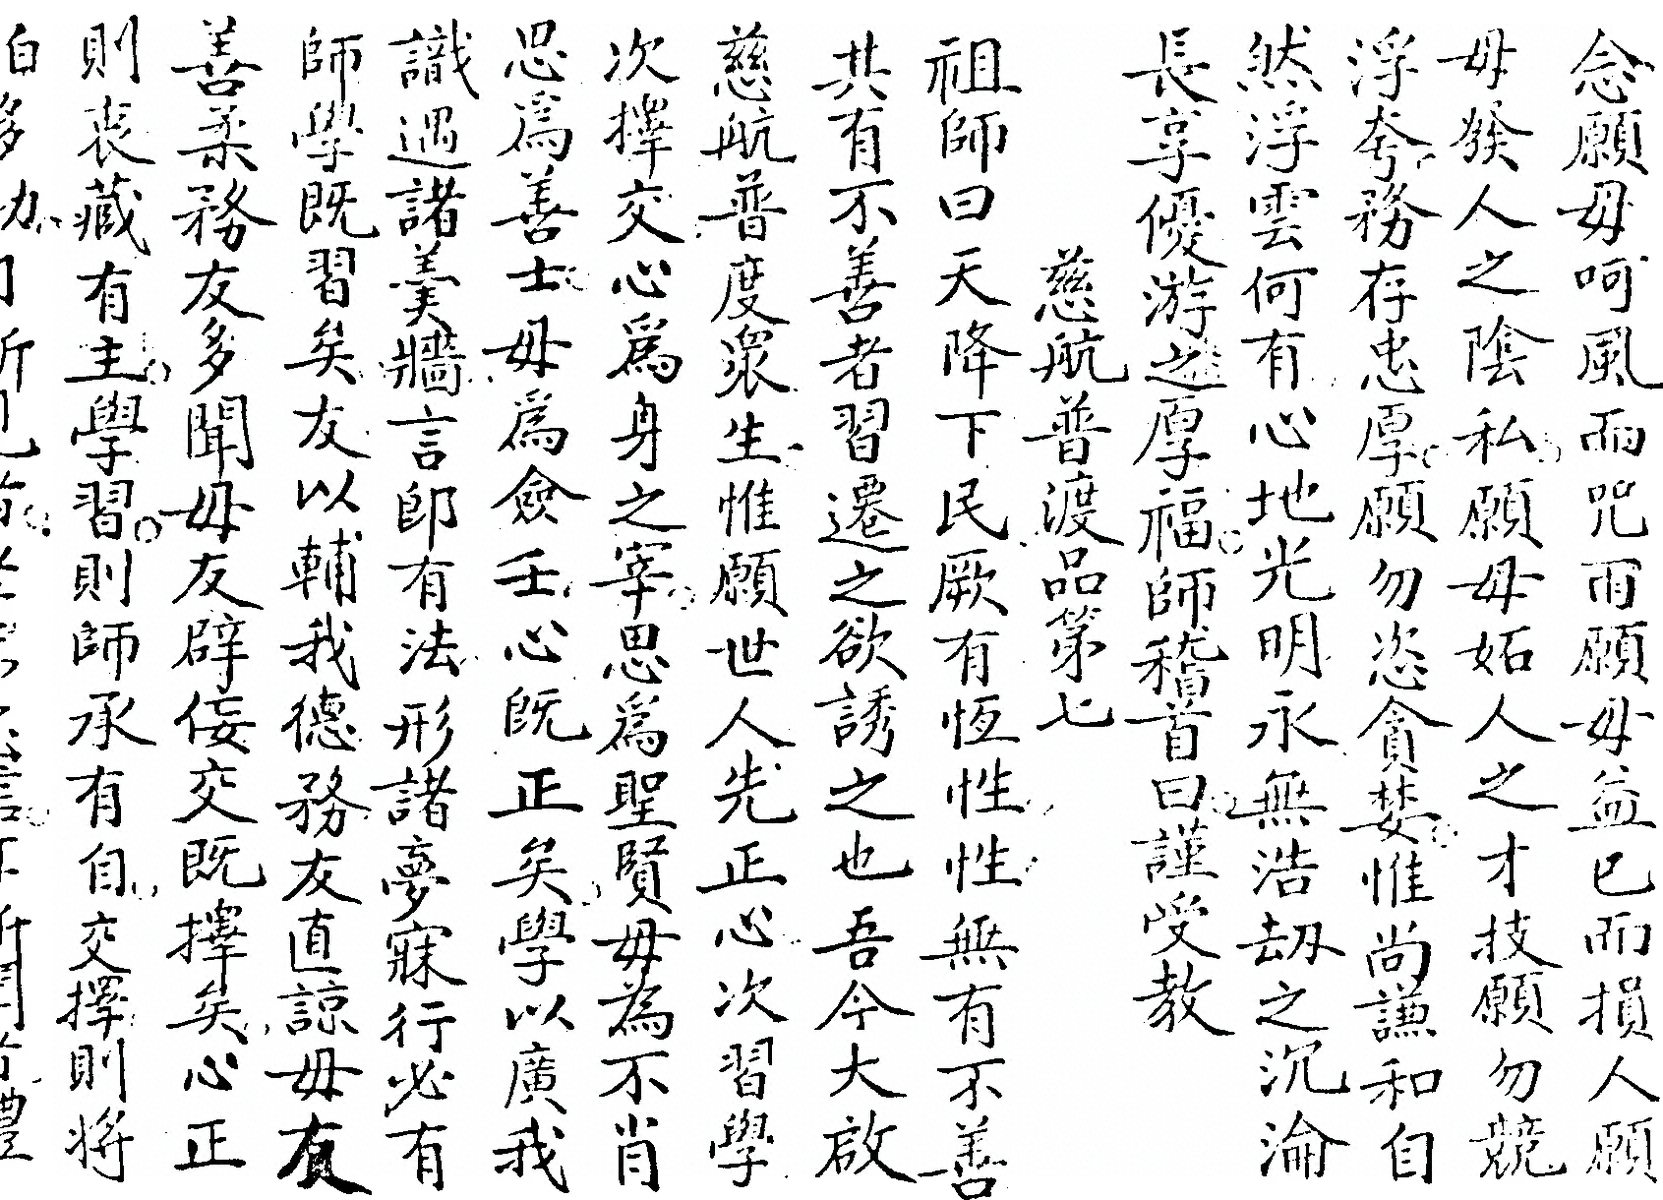 念願毋呵風而咒雨願毋益已而損人願
毋發人之陰私願毋妬人之才技願勿競
浮夸務存忠厚願勿恣貪婪惟尚謙和自
然浮雲何有心地光明永無浩劫之沉淪
長享優游之厚福師稽首曰謹受教
慈航普渡品第七
祖師曰天降下民厥有恆性性無有不善
共有不善者習遷之欲誘之也吾今大啟
慈航普度眾生惟願世人先正心次習學
次擇交心為身之宰思為聖賢毋為不肖
思為善士毋為僉壬心既正矣學以廣我
識遇諸羹牆言即有法形諸夢寐行必有
師學既習矣友以輔我德務友直諒毋友
善柔務友多聞毋友辟佞交既擇矣心正
則衷藏有主學習則師承有自交擇則將